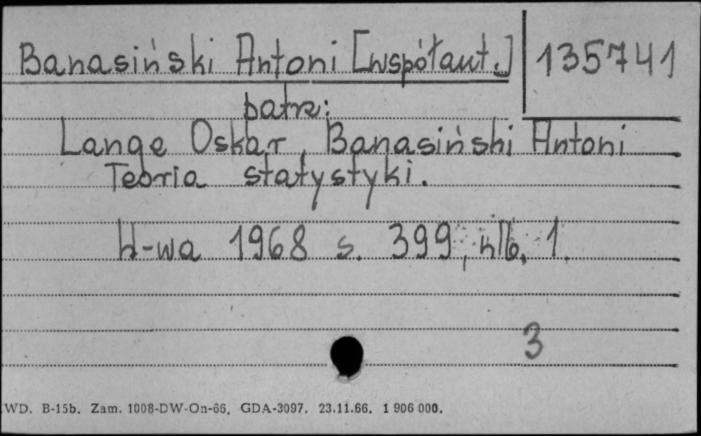 Banasiński Antoni [współaut.] 135741
patrz:
Lange Oskar, Banasiński Antoni
Teoria statystyki.
W-wa 1968 s. 399, nlb. 1.
3
WD. B-15b. Zam. 1008-DW-On-66. GDA-3097. 23.11.66. 1 906 000.